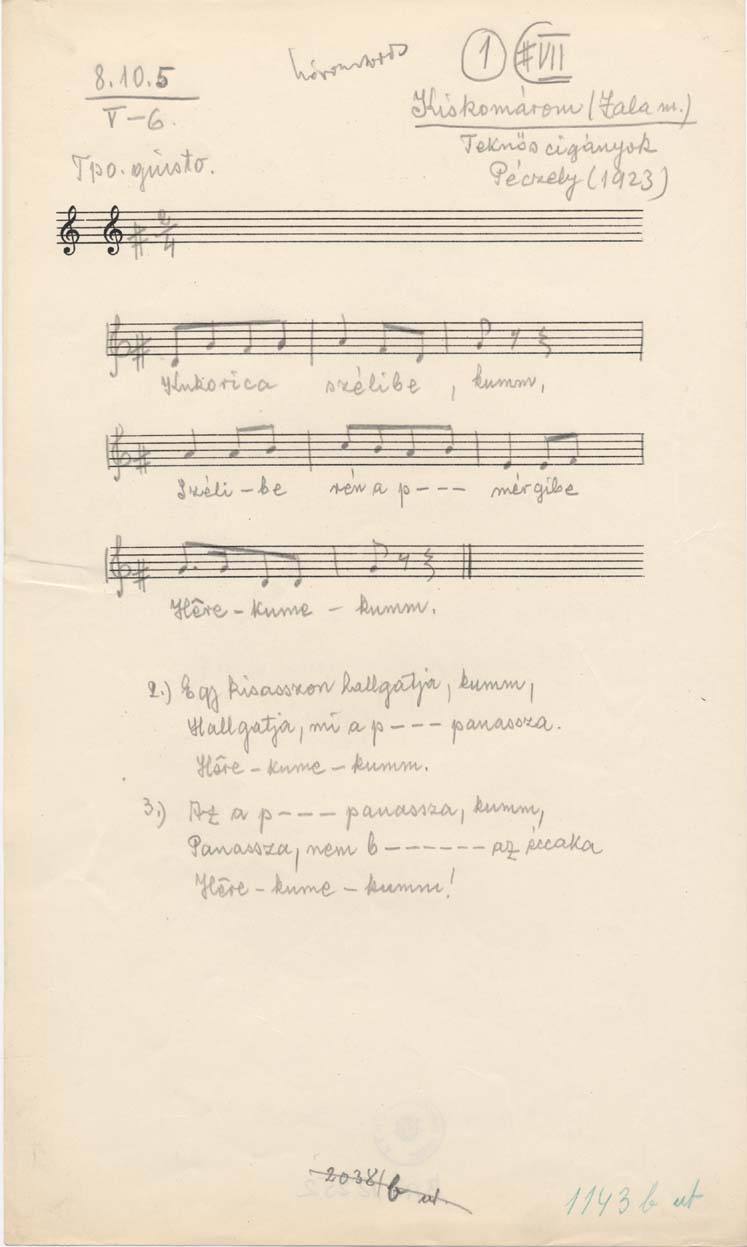 8.10.5
V-6.
Tpo. giusto.
háromsoros
1 #VII
Kiskomárom (Zala m.)
Teknős cigányok
Péczely (1923)
2/4
Kukorica szélibe, kumm,
Széli-be rén a p--- mérgibe
Hêre-kume-kumm.
2.) Egy kisasszon hallgatja, kumm,
Hallgatja, mi a p--- panassza.
Hêre-kume-kumm.
3.) Az a p--- panassza, kumm,
Panassza, nem b------ az éccaka
Hêre-kume-kumm!
2038/b ut.
1143 b ut